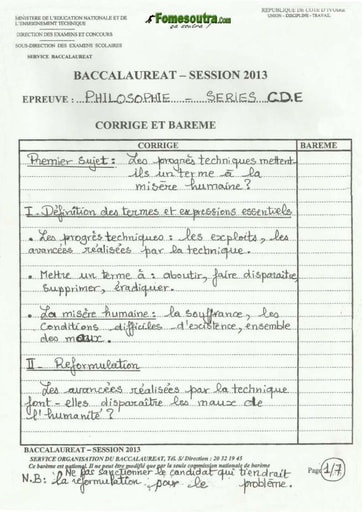 MINISTERE DE L'EDUCATION NATIONALE ET DE
L'ENSEIGNEMENT TECHNIQUE
DIRECTION DES EXAMENS ET CONCOURS
SOUS-DIRECTION DES EXAMENS SCOLAIRES
SERVICE BACCALAUREAT
Fomesoutra.com
ça soutra !
REPUBLIQUE DE COTE D'IVOIRE
UNION – DISCIPLINE – TRAVAIL
BACCALAUREAT – SESSION 2013
EPREUVE : PHILOSOPHIE – SERIES C.D.E
CORRIGE ET BAREME
CORRIGE BAREME
Premier sujet : Les progrès techniques mettent
ils un terme à la
misère humaine ?
I - Définition des termes et expressions essentiels
• Les progrès techniques : les exploits, les
avancées réalisées par la technique.
• Mettre un terme à : aboutir, faire disparaître,
supprimer, éradiquer.
• La misère humaine : la souffrance, les
conditions difficiles d'existence, ensemble
des maux.
II - Reformulation
Les avancées réalisées par la technique
font-elles disparaître les maux de
l'humanité ?
BACCALAUREAT – SESSION 2013
SERVICE ORGANISATION DU BACCALAUREAT, Tél. S/ Direction : 20 32 19 45
Ce barème est national. Il ne peut être modifié que par la seule commission nationale de barème
Page 1/7
N.B: Ne pas sanctionner le candidat qui tiendrait
la reformulation pour le problème.